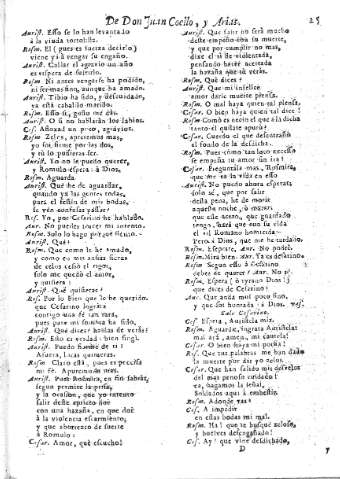 De Don Juan Coello, y Arias. 25
Aurist. Esso se lo han levantado
à la viuda tortolilla.
Rosm. El (pues es fuerza decirlo)
viene yà à vengar su engaño.
Aurist. Callar el agravio un año
es espera de
Rosm. Ni antes vengarse ha podido,
ni fer aunque ha amado.
Aurist. Tibio ha sido, y descuidado,
ya està caballo marillo.
Rosm. Esso si, gozo me
Aurist. O si no hablàra los labios.
Ces. Añozad un pesar, agravios.
Rosm. Zelos, apuremos mas,
yo soi firme por los dos,
y tù lo pudieras ser.
Aurist. Yo no le puedo querer,
y Romulo espera: à Dios,
Rosm. Aguarda.
Aurist. Què he de aguardar,
quando ya las gentes todas,
para el festin de mis bodas
se vèn
Ros. Yo, por Cesarino he hablado.
Aur. No puedes tener mi intento.
Rosm. Solo lo hago por
Aurist. Què?
Rosm. Que como le he amado,
y como en mis ansias fieras
de zelos cessò el rigor,
solo me quedò el amor,
y quisiera:
Aurist. Què quisieras?
Ros. Por lo bien que lo he querido,
que Cesarino lográra
contigo una fè tan rara,
pues para mi sombra ha sido,
Aurist. Què dices? hablas de veras?
Rosm. Esso es verdad: bien fingì.
Aurist. Puedo fiarme de tì?
Afuera, locas quimeras.
Rosm. Claro està, pues es precisa
mi fè.
Aurist. Pues Rosmira, en fin sabràs,
segun permite la prisa,
y la ocasion, que yo intento
salir deste aprieto
con una hazaña, en que doè
à la violencia escarmiento,
y que aborrezco de suerte
à Romulo:
Cesar. Amor, què escucho!
Aurist. Que salir no serà mucho
deste empeño con su muerte,
y que por cumplir no mas,
dixe el sì violentada,
pensando hacer acertada
la hazaña que tù veràs.
Rosm. Què dices?
Aurist. Que mi infelice
amor darle muerte piensa.
Rosm. O mal haya quien tal piensa,
Cesar. O bien haya quien tal dice!
Rosm. Como es necio el que à la dicha
tanto el quilate apurò!
Cesar. Cuerdo el que desentrañò
el fondo de la desdicha.
Rosm. Pues còmo tan loco excesso
se empeña tu amor sin ira!
Cesar. Preguntàla mas, Rosmira,
que me va la vida en esso
Aurist. No puedo ahora
solo sè, que por salir
desta pena, he de morir
aquesta noche, ò morir:
que este acero, que guardado
tengo, harà que con su vida
el
Pero à Dios, que me he tardado.
Rosm. Espera, Aur. No podrè.
Rosm. Mira bien. Aur. Ya es desatino
Rosm. Segun esso à Cesarino
debes de querer? Aur. No sè.
Rosm. Espera (ò tyrano Dios!)
que dices de Cesarino?
Aur. Que anda mui poco fino,
y que doi honrada: à Dios. vase.
Sale Cesarino.
Ces. Espera, Auristela mia.
Rosm. Aguarda, ingrata Auristela:
mal arà, amen, mi cautela!
Cesar. O bien haya mi porfia!
Ros. Que tus palabras me han dado
la muerte por dàr yo zelos.
Cesar. Que han salido mis desvelos
del mas penoso cuidado!
ea, hagamos la señal,
Soldados aqui à embestir.
Rosm. Adonde vàs.
Ces. A impedir
en estas bodas mi mal.
Rosm. Hà! que te busquè zeloso,
y buelves desengañado!
Ces. Ay! que vine desdichado,
D y